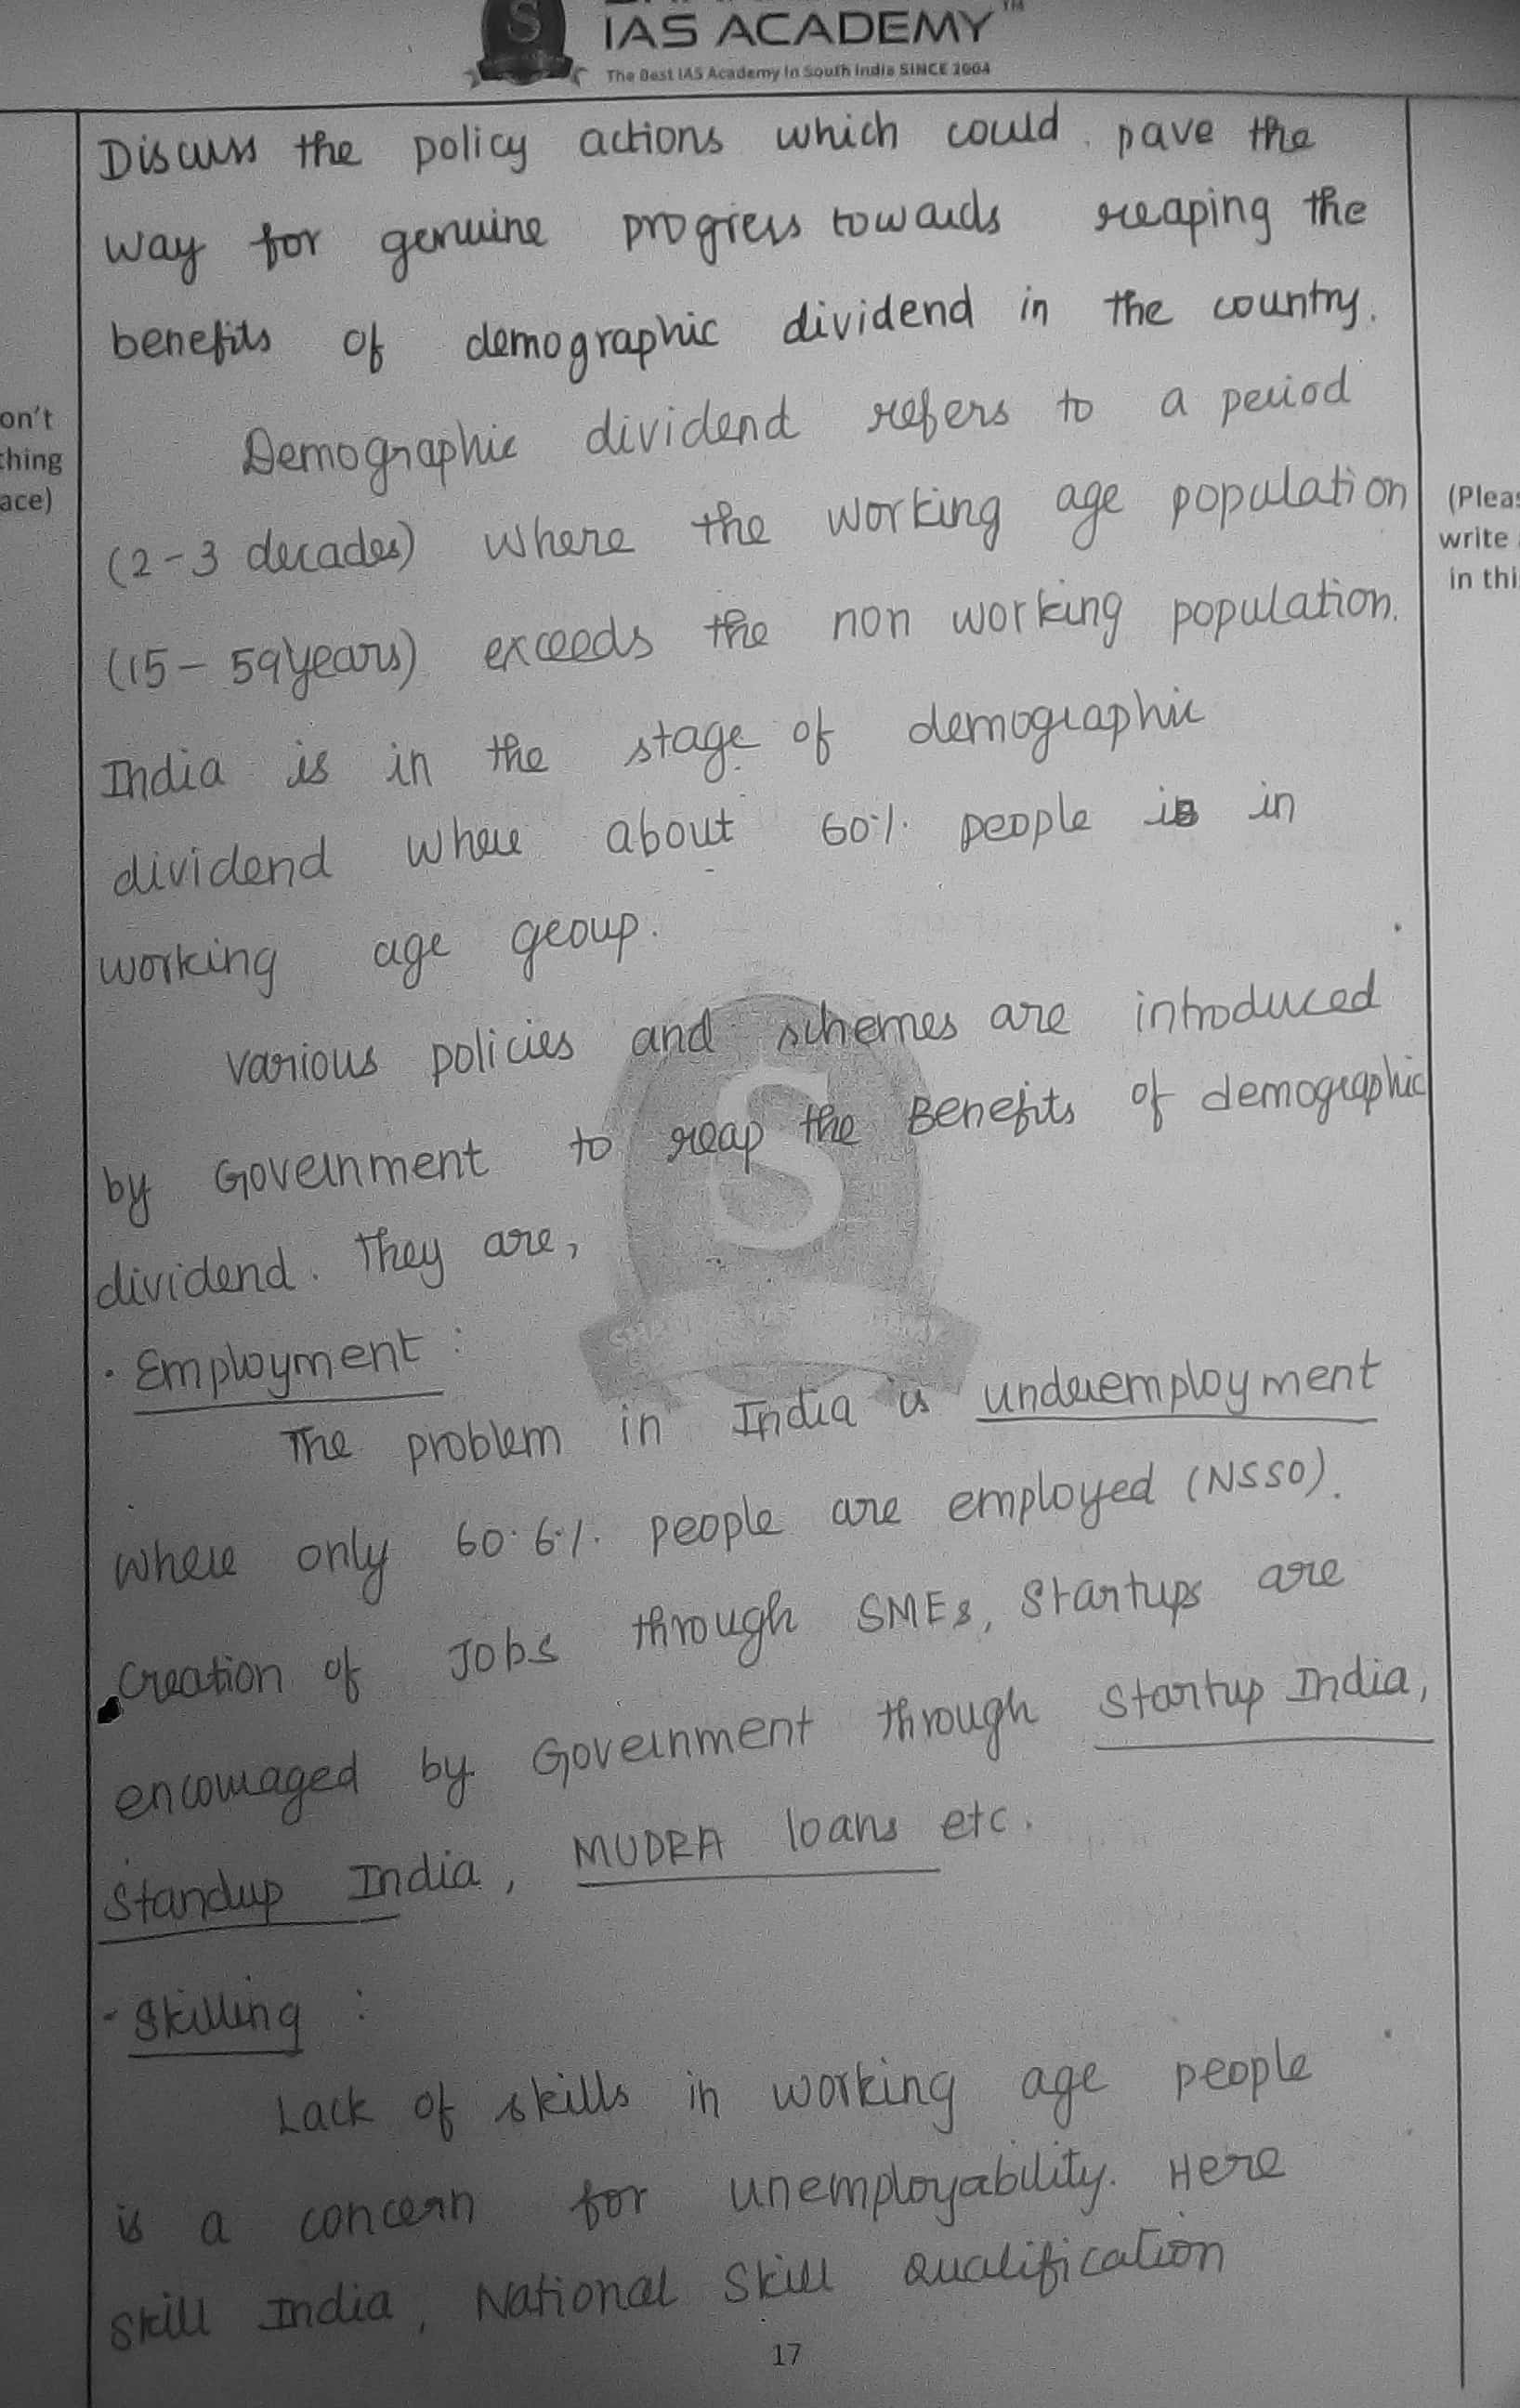 IAS ACADEMY™
The Best IAS Academy In South India SINCE 2004
Discuss the policy actions which could pave the
way for genuine progress towards reaping the
benefits of demographic dividend in the country.
on't
thing
ace)
Demographic dividend refers to a period
(2-3 decades) where the working age population
(15-59years) exceeds the non working population.
(Pleas
write
in thi
India is in the stage of demographic
dividend where about 60% people is in
working age group.
various policies and schemes are introduced
by Government to reap the Benefits of demographic
dividend. They are,
• Employment :
The problem in India is underemployment
where only 60.6% people are employed (NSSO).
Creation of Jobs through SMEs, Startups are
encouraged by Government through Startup India,
Standup India, MUDRA loans etc.
- Skilling :
Lack of skills in working age people
is a concern for unemployability. Here
Skill India, National Skill Qualification
S
17